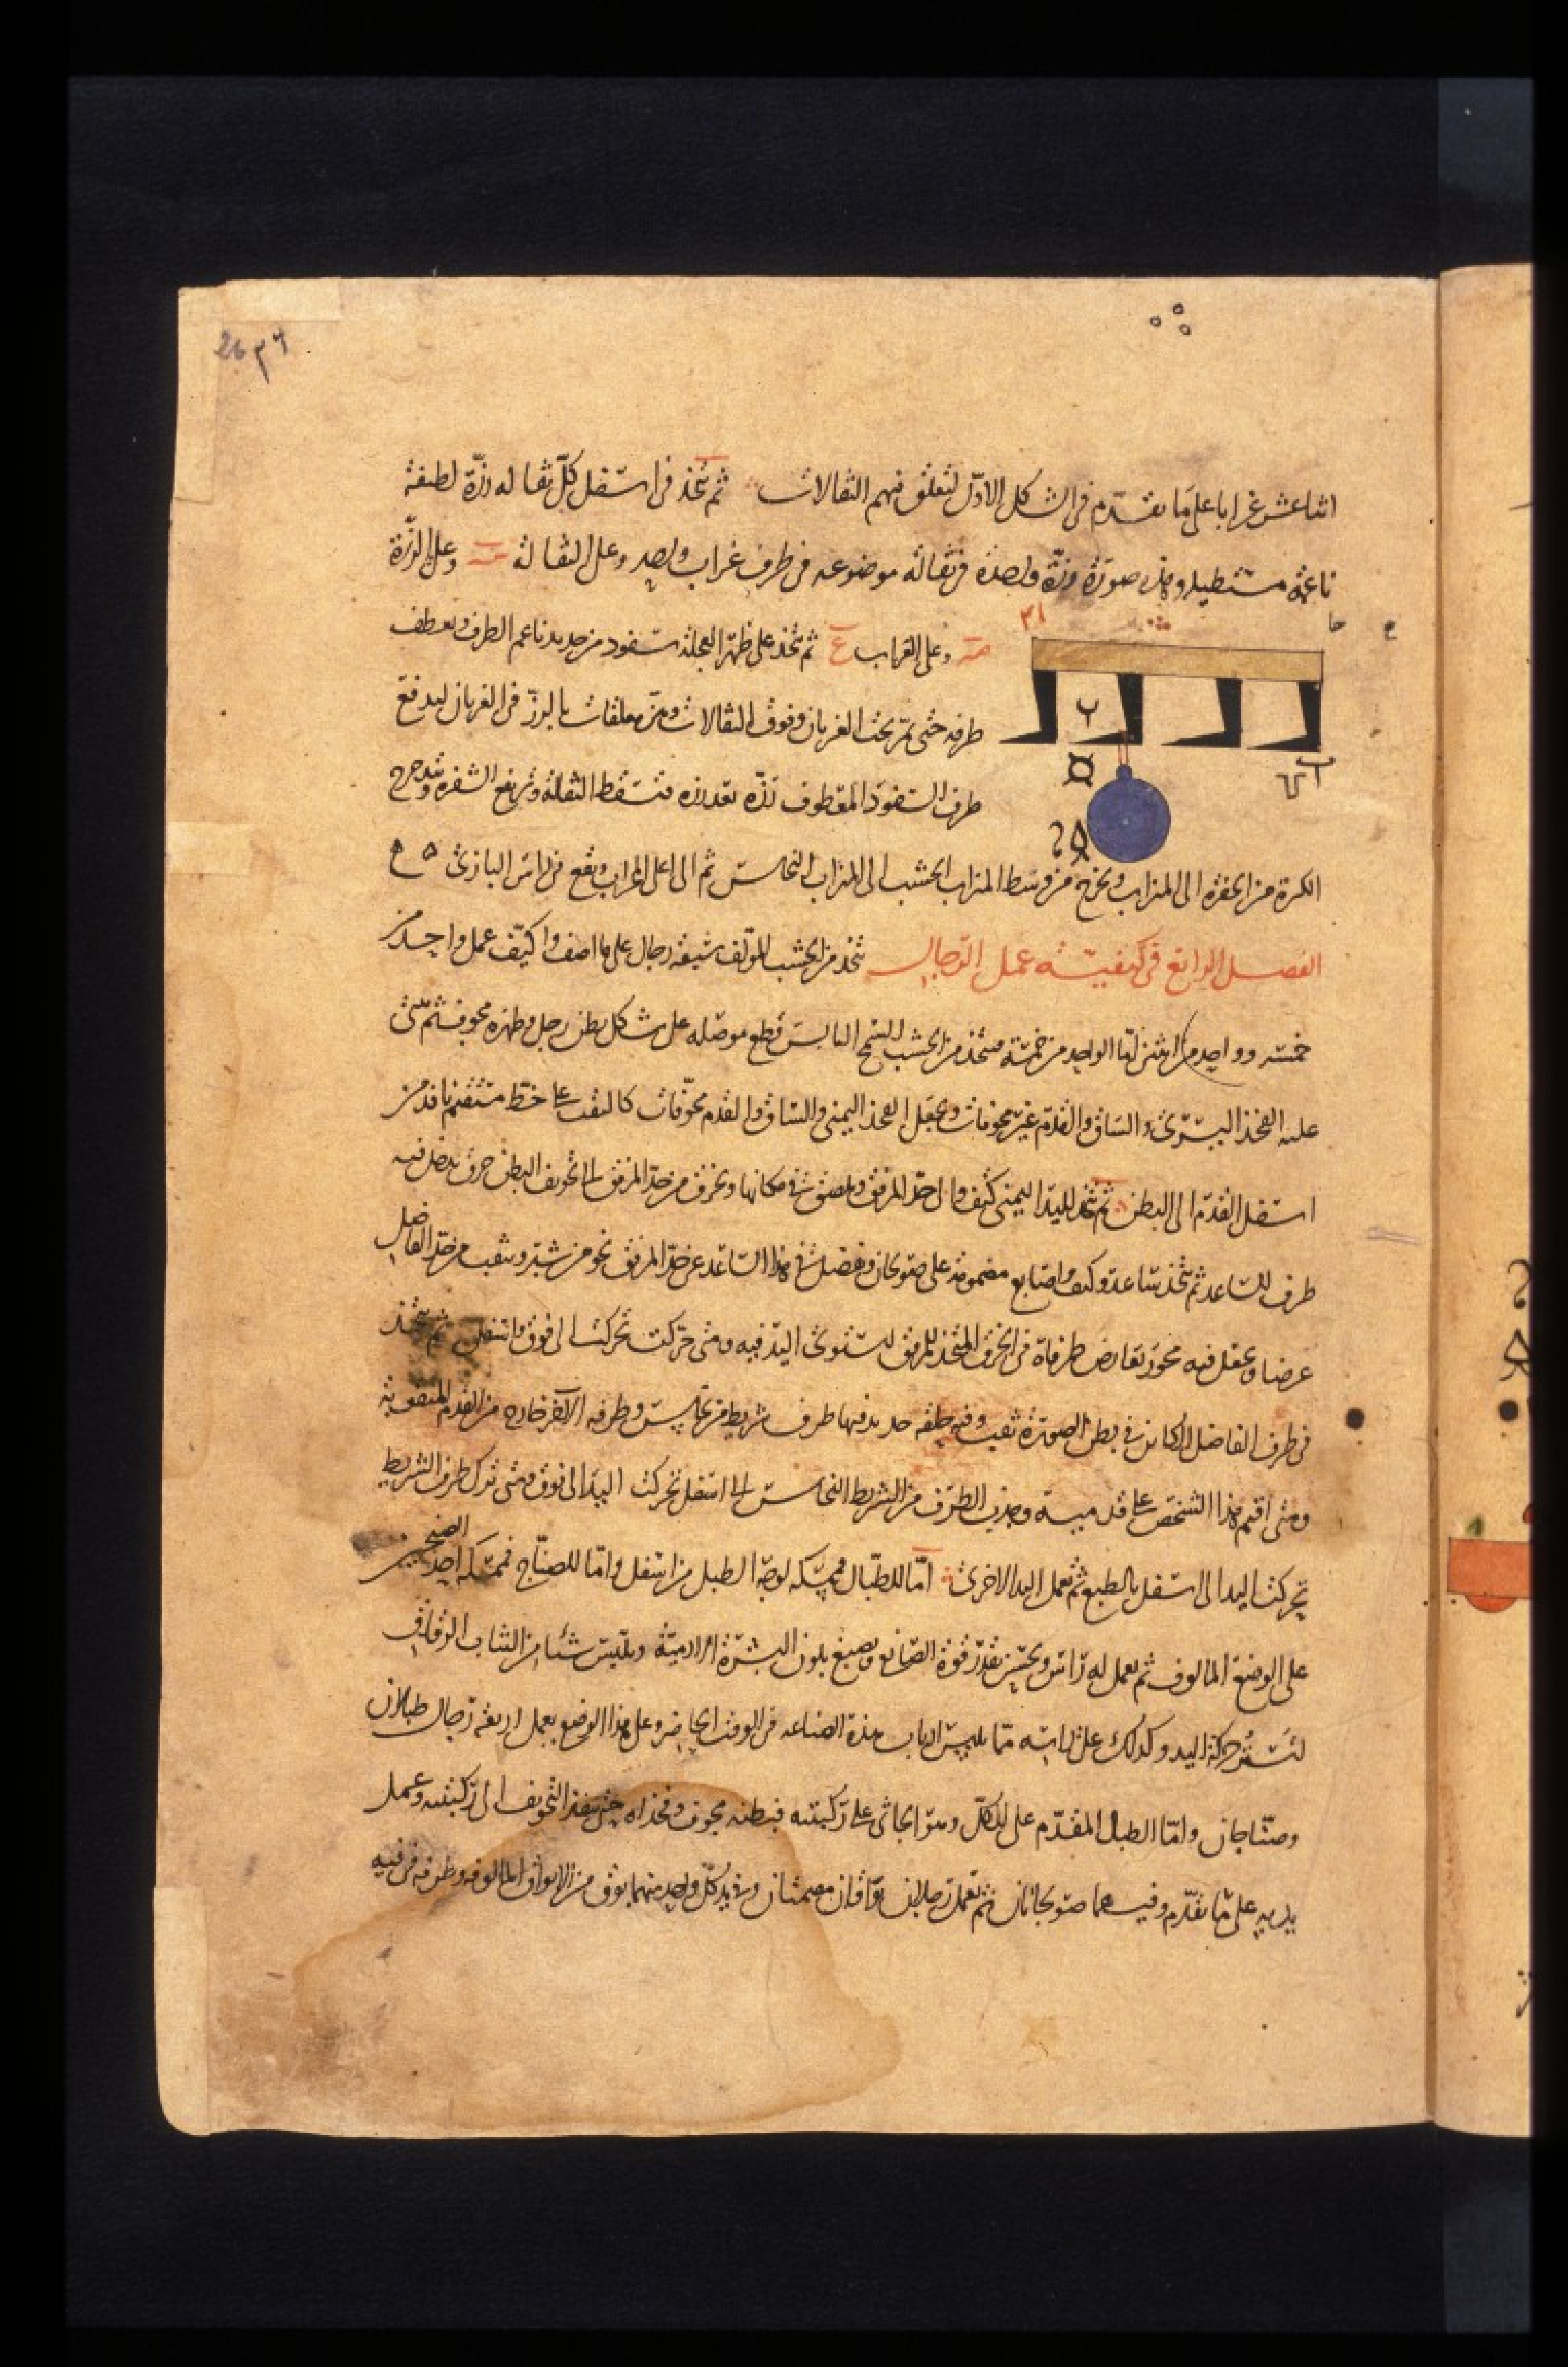 ٣٦ 26
اثنا عشر غرابا على ما تقدّم في الشكل الاوّل لتعلق فيهم الثقالات ثم تتخذ في اسفل كلّ ثقاله رزّة لطيفة
ناعمة مستطيله وهذه صورة رزّة واحدة في ثقاله موضوعه في طرف غراب واحد وعلى الثقالة وعلى الرزّة
وعلى الغراب ع ثم تتخذ على ظهر العجلة سفود من حديد ناعم الطرف ويعطف
طرفه حتى تمرّ تحت الغربان وفوق الثقالات وهنّ معلقات بالرزز في الغربان ليدفع
طرف السفود المعطوف رزّه بعد رزه فتسقط الثقالة وترفع السفره وتتدحرج
الكرة من الحفره الى المنزاب وتخرج من وسط المنزاب الخشب الى المنزاب النحاس ثم الى اعلى المنزاب وتقع من راس البازي
الفصل الرابع في كيفيّة عمل الرجال تتخذ من الخشب المؤلف سبعة رجال على ما اصف واكيّف عمل واحد من
خمسه وواحد من اثنين امّا الواحد من خمسة فيتخذ من الخشب اليابس قطع موصّله على شكل بطن رجل وظهره مجوف ثم تثنى
عليه الفخذ اليسرى والساق والقدم غير مجوفات ويجعل الفخذ اليمنى والساق والقدم مجوّفات كالثقب على خط مستقيم نافذ من
اسفل القدم الى البطن ثم تتخذ لليد اليمنى كتف الى حدّ المرفق وتلصق في مكانها ويخرق من حدّ المرفق الى تجويف البطن خرق يدخل فيه
طرف الساعد ثم تتخذ ساعد وكف واصابع مضمومة على صولجان ويفضل في هذا الساعد عن حدّ المرفق نحو من شبر ويثقب من حدّ الفاضل
عرضا ويجعل فيه محور تعارض طرفاه في الخرق المتخذ للمرفق لتستوى اليد فيه ومتى حركت تحركت الى فوق واسفل ثم يتخذ
في طرف الفاضل الكائن في بطن الصورة ثقب وفيه حلقه حديد فيها طرف شريط من نحاس وطرفه الآخر خارج من القدم المثقوبة
ومتى اقيم هذا الشخص على قدميه وجذب الطرف من الشريط النحاس الى اسفل تحركت اليد الى فوق ومتى ترك طرف الشريط
تحركت اليد الى اسفل بالطبع ثم تعمل اليد الاخرى امّا للطبّال فممسكه لوجه الطبل من اسفل وامّا للصنّاج فممسكه احد الصنجين
على الوضع المالوف ثم يعمل له راس ويحسن بقدر قوة الصانع ويصبغ بلون البشرة الادميّة ويلبس شيئا من الثياب الرقاق
لتستر حركة اليد وكذلك على راسه مما يلبس ارباب هذه الصناعه في الوقت الحاضر وعلى هذا الوضع يعمل اربعة رجال طبلان
وصنّاجان وامّا الطبال المقدّم على الكلّ وهو الجاثى على ركبتيه فبطنه مجوف وفخذاه حتى ينفذ التجويف الى ركبتيه وعمل
يديه على ما تقدّم وفيهما صولجانان ثم تعمل رجلان بوّاقان مصمتان وفى يد كلّ واحد منهما بوق من الابواق المالوفه وطرفه في فيه